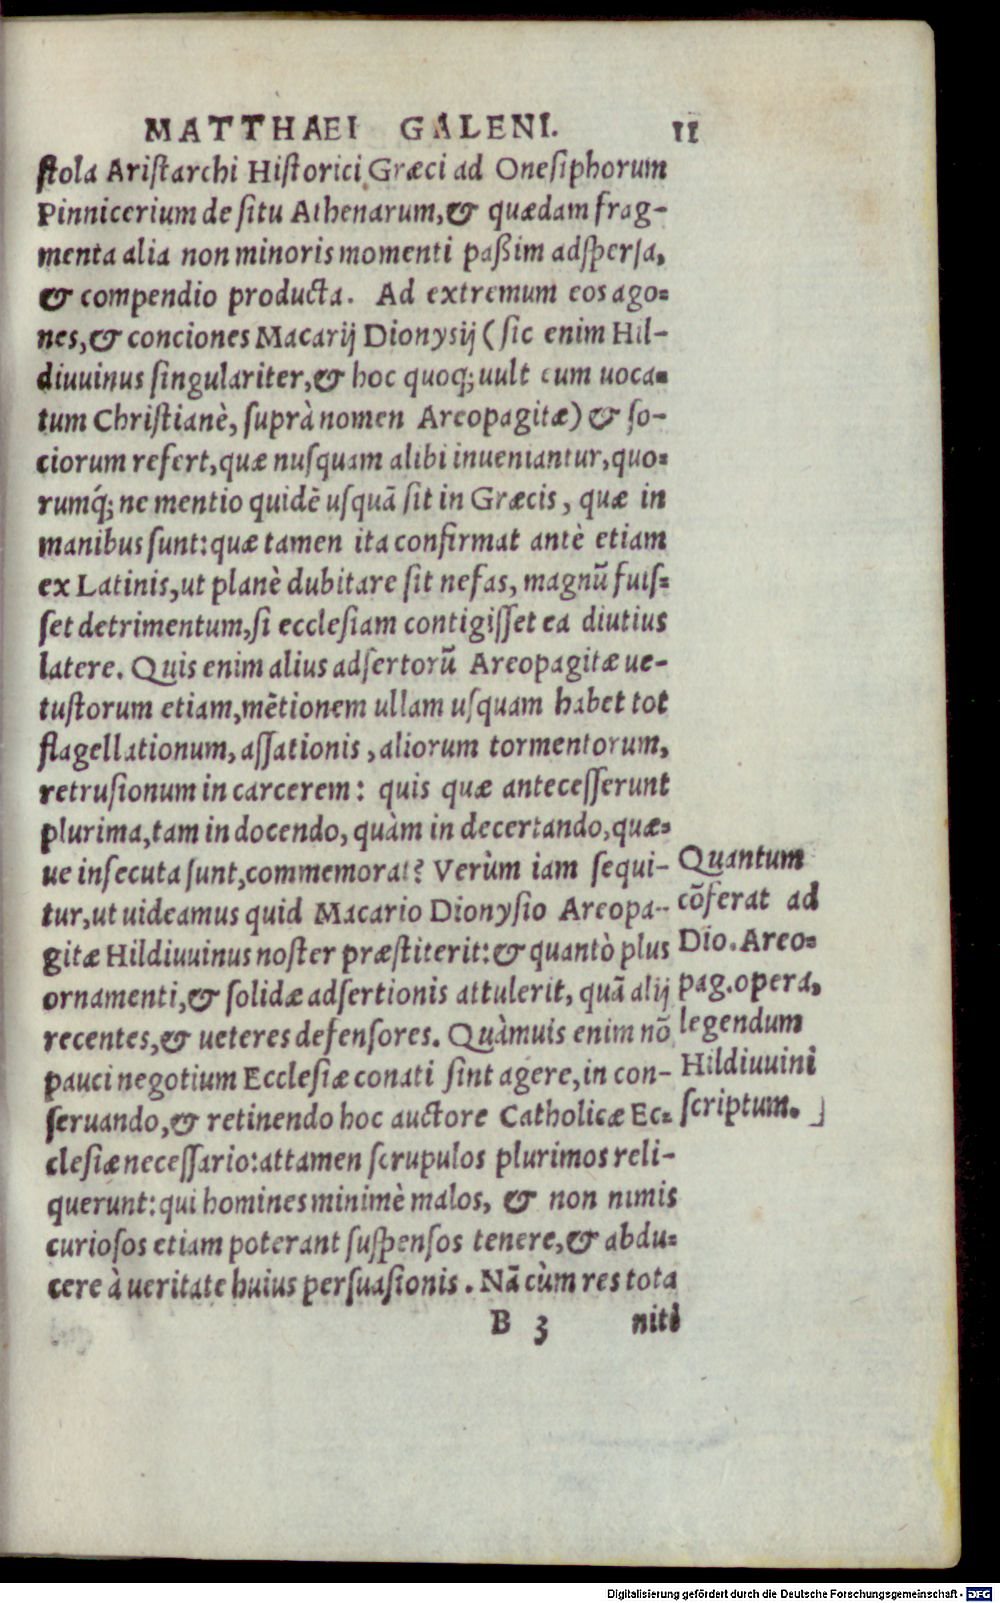 MATTHAEI GALENI. 11
ſtola Ariſtarchi Hiſtorici Græci ad Oneſiphorum
Pinnicerium de ſitu Athenarum, & quædam frag-
menta alia non minoris momenti paßim adſperſa,
& compendio producta. Ad extremum eos ago=
nes, & conciones Macarij Dionyſij (ſic enim Hil-
diuuinus ſingulariter, & hoc quoq; uult eum uoca=
tum Chriſtianè, ſuprà nomen Areopagitæ) & ſo-
ciorum refert, quæ nuſquam alibi inueniantur, quo=
rumq́; ne mentio quidē uſquā ſit in Græcis, quæ in
manibus ſunt: quæ tamen ita confirmat antè etiam
ex Latinis, ut planè dubitare ſit nefas, magnū fuiſ=
ſet detrimentum, ſi eccleſiam contigiſſet ea diutius
latere. Quis enim alius adſertorū Areopagitæ ue-
tuſtorum etiam, mētionem ullam uſquam habet tot
flagellationum, aſſationis, aliorum tormentorum,
retruſionum in carcerem: quis quæ anteceſſerunt
plurima, tam in docendo, quàm in decertando, quæ=
ue inſecuta ſunt, commemorat? Verùm iam ſequi-
tur, ut uideamus quid Macario Dionyſio Areopa-
gitæ Hildiuuinus noſter præſtiterit: & quantò plus
ornamenti, & ſolidæ adſertionis attulerit, quā alij
recentes, & ueteres defenſores. Quàmuis enim nō
pauci negotium Eccleſiæ conati ſint agere, in con-
ſeruando, & retinendo hoc auctore Catholicæ Ec=
cleſiæ neceſſario: attamen ſcrupulos plurimos reli-
querunt: qui homines minimè malos, & non nimis
curioſos etiam poterant ſuſpenſos tenere, & abdu=
cere à ueritate huius perſuaſionis. Nā cùm res tota
B 3 niti
Quantum
cōferat ad
Dio. Areo=
pag. opera,
legendum
Hildiuuini
ſcriptum.
Digitalisierung gefördert durch die Deutsche Forschungsgemeinschaft - DFG